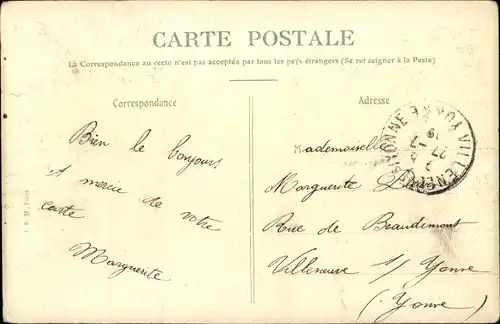 CARTE POSTALE
La Correspondance au recto n'est pas acceptée par tous les pays étrangers (Se renseigner à la Poste)
Correspondance
Adresse
Bien le bonjour
et merci de votre
carte
Marguerite
Mademoiselle
Marguerite
Rue de Beaudemont
Villeneuve s/ Yonne
(Yonne)
VILLENEUVE S YONNE YONNE